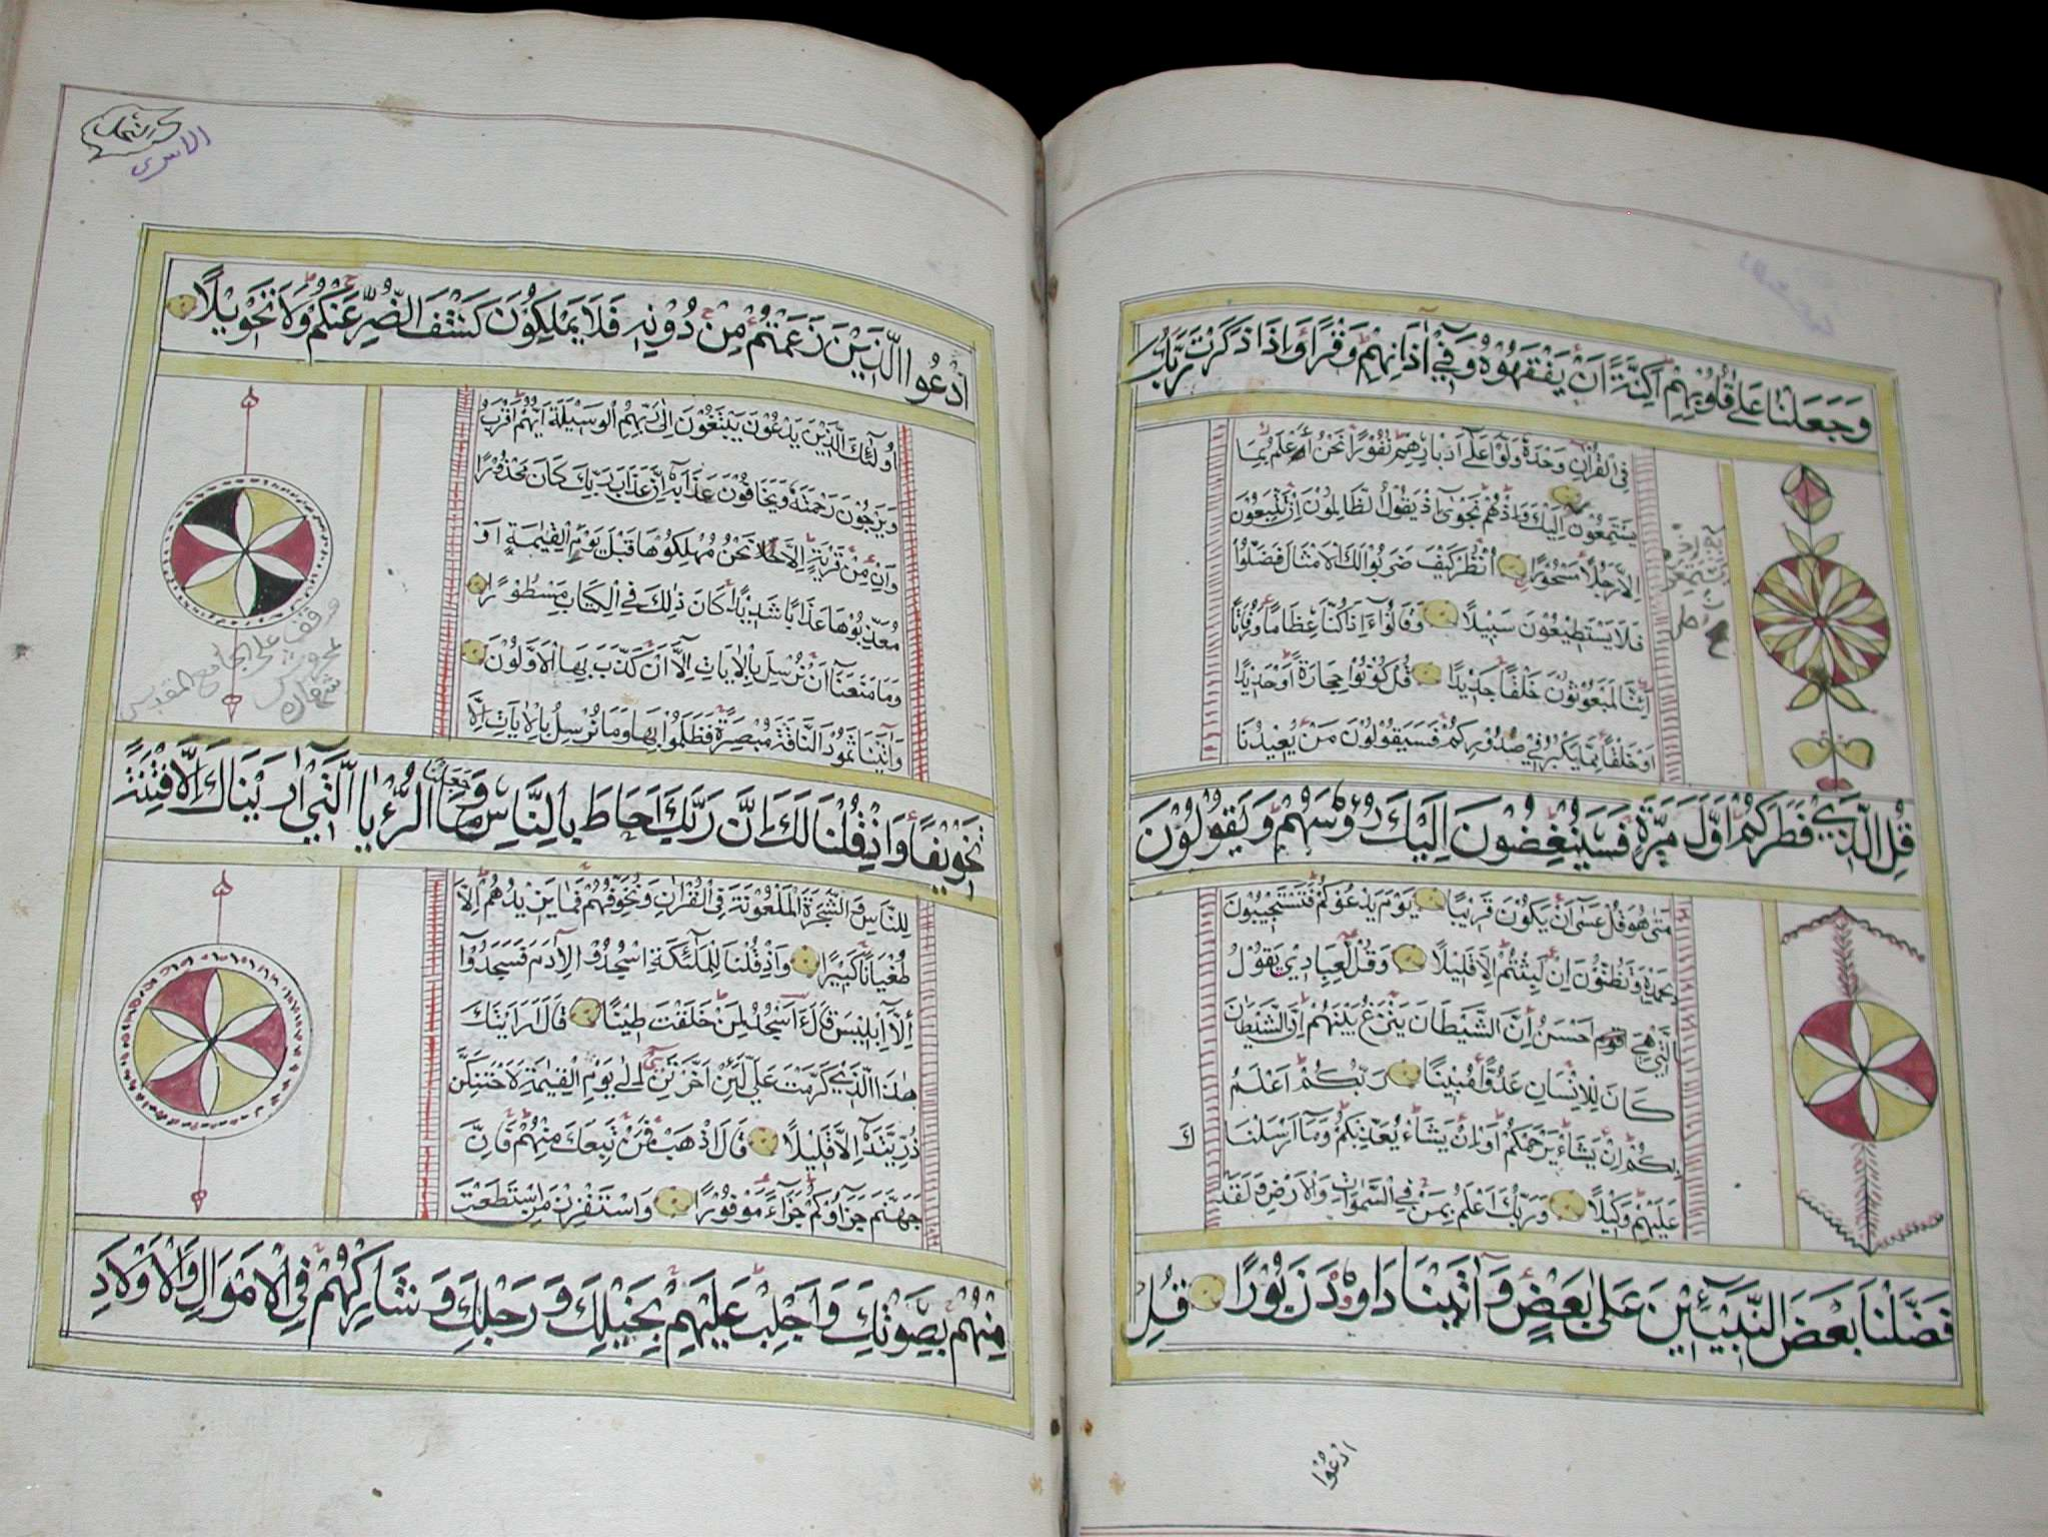 وَجَعَلْنَا عَلَىٰ قُلُوبِهِمْ اَكِنَّةً اَنْ يَفْقَهُوهُ وَفِي اٰذَانِهِمْ وَقْرًا وَاِذَا ذَكَرْتَ رَبَّكَ
فِي الْقُرْاٰنِ وَحْدَهُ وَلَّوْا عَلٰى اَدْبَارِهِمْ نُفُورًا نَحْنُ اَعْلَمُ بِمَا
يَسْتَمِعُوْنَ اِلَيْكَ وَاِذْ هُمْ نَجْوٰى اِذْ يَقُوْلُ الظَّالِمُوْنَ اِنْ تَتَّبِعُوْنَ
اِلَّا رَجُلًا مَسْحُوْرًا اُنْظُرْ كَيْفَ ضَرَبُوْا لَكَ الْاَمْثَالَ فَضَلُّوْا
فَلَا يَسْتَطِيْعُوْنَ سَبِيْلًا وَقَالُوْا ءَاِذَا كُنَّا عِظَامًا وَرُفَاتًا
اِئِنَّا لَمَبْعُوْثُوْنَ خَلْقًا جَدِيْدًا قُلْ كُوْنُوْا حِجَارَةً اَوْ حَدِيْدًا
اَوْ خَلْقًا مِمَّا يَكْبُرُ فِي صُدُوْرِكُمْ فَسَيَقُوْلُوْنَ مَنْ يُعِيْدُنَا
قُلِ الَّذِيْ فَطَرَكُمْ اَوَّلَ مَرَّةٍ فَسَيُنْغِضُوْنَ اِلَيْكَ رُءُوْسَهُمْ وَيَقُوْلُوْنَ
مَتٰى هُوَ قُلْ عَسٰى اَنْ يَكُوْنَ قَرِيْبًا يَوْمَ يَدْعُوْكُمْ فَتَسْتَجِيْبُوْنَ
بِحَمْدِهِ وَتَظُنُّوْنَ اِنْ لَبِثْتُمْ اِلَّا قَلِيْلًا وَقُلْ لِعِبَادِيْ يَقُوْلُ
الَّتِيْ هِيَ اَحْسَنُ اِنَّ الشَّيْطَانَ يَنْزَغُ بَيْنَهُمْ اِنَّ الشَّيْطَانَ
كَانَ لِلْاِنْسَانِ عَدُوًّا مُبِيْنًا رَبُّكُمْ اَعْلَمُ
بِكُمْ اِنْ يَشَاءْ يَرْحَمْكُمْ اَوْ اِنْ يَشَاءْ يُعَذِّبْكُمْ وَمَا اَرْسَلْنَا كَ
عَلَيْهِمْ وَكِيْلًا وَرَبُّكَ اَعْلَمُ بِمَنْ فِي السَّمٰوَاتِ وَالْاَرْضِ وَلَقَدْ
فَضَّلْنَا بَعْضَ النَّبِيّٖنَ عَلٰى بَعْضٍ وَاٰتَيْنَا دَاوُدَ زَبُوْرًا قُلِ
ادْعُوْا
الاسرى
اُدْعُوا الَّذِيْنَ زَعَمْتُمْ مِنْ دُوْنِهِ فَلَا يَمْلِكُوْنَ كَشْفَ الضُّرِّ عَنْكُمْ وَلَا تَحْوِيْلًا
اُولٰئِكَ الَّذِيْنَ يَدْعُوْنَ يَبْتَغُوْنَ اِلٰى رَبِّهِمُ الْوَسِيْلَةَ اَيُّهُمْ اَقْرَبُ
وَيَرْجُوْنَ رَحْمَتَهُ وَيَخَافُوْنَ عَذَابَهُ اِنَّ عَذَابَ رَبِّكَ كَانَ مَحْذُوْرًا
وَاِنْ مِنْ قَرْيَةٍ اِلَّا نَحْنُ مُهْلِكُوْهَا قَبْلَ يَوْمِ الْقِيٰمَةِ اَوْ
مُعَذِّبُوْهَا عَذَابًا شَدِيْدًا كَانَ ذٰلِكَ فِي الْكِتَابِ مَسْطُوْرًا
وَمَا مَنَعَنَا اَنْ نُرْسِلَ بِالْاٰيَاتِ اِلَّا اَنْ كَذَّبَ بِهَا الْاَوَّلُوْنَ
وَاٰتَيْنَا ثَمُوْدَ النَّاقَةَ مُبْصِرَةً فَظَلَمُوْا بِهَا وَمَا نُرْسِلُ بِالْاٰيَاتِ اِلَّا
تَخْوِيْفًا وَاِذْ قُلْنَا لَكَ اِنَّ رَبَّكَ اَحَاطَ بِالنَّاسِ وَمَا جَعَلْنَا الرُّءْيَا الَّتِيْ اَرَيْنَاكَ اِلَّا فِتْنَةً
لِلنَّاسِ وَالشَّجَرَةَ الْمَلْعُوْنَةَ فِي الْقُرْاٰنِ وَنُخَوِّفُهُمْ فَمَا يَزِيْدُهُمْ اِلَّا
طُغْيَانًا كَبِيْرًا وَاِذْ قُلْنَا لِلْمَلٰئِكَةِ اسْجُدُوْا لِاٰدَمَ فَسَجَدُوْا
اِلَّا اِبْلِيْسَ قَالَ ءَاَسْجُدُ لِمَنْ خَلَقْتَ طِيْنًا قَالَ اَرَاَيْتَكَ
هٰذَا الَّذِيْ كَرَّمْتَ عَلَيَّ لَئِنْ اَخَّرْتَنِ اِلٰى يَوْمِ الْقِيٰمَةِ لَاَحْتَنِكَنَّ
ذُرِّيَّتَهُ اِلَّا قَلِيْلًا قَالَ اذْهَبْ فَمَنْ تَبِعَكَ مِنْهُمْ فَاِنَّ
جَهَنَّمَ جَزَاؤُكُمْ جَزَاءً مَوْفُوْرًا وَاسْتَفْزِزْ مَنِ اسْتَطَعْتَ
مِنْهُمْ بِصَوْتِكَ وَاَجْلِبْ عَلَيْهِمْ بِخَيْلِكَ وَرَجِلِكَ وَشَارِكْهُمْ فِي الْاَمْوَالِ وَالْاَوْلَادِ
وقف على الجامع المقدس